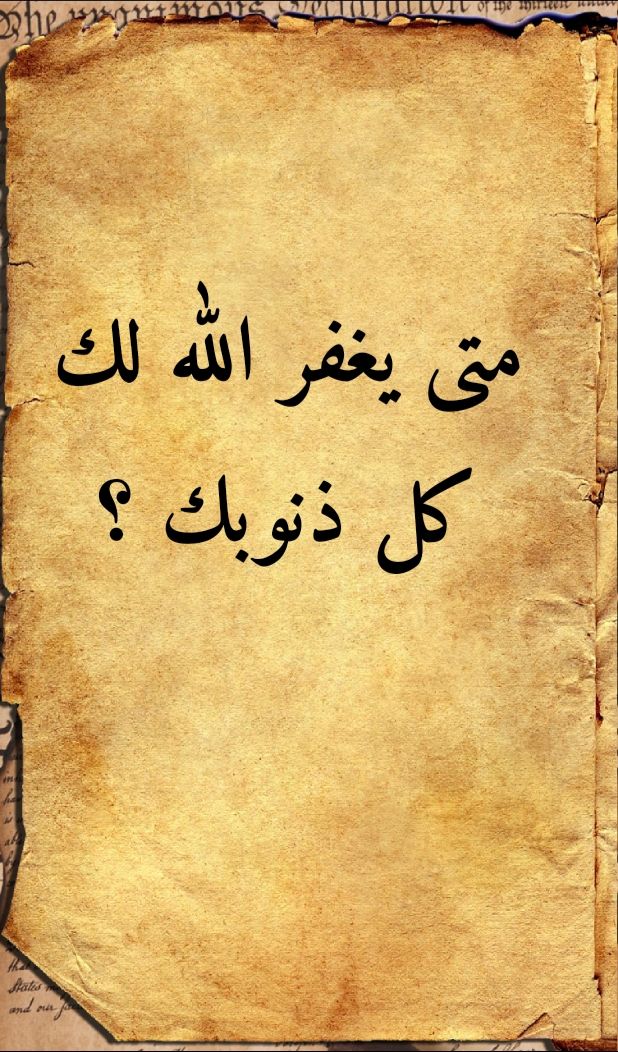 The unanimous Declaration of the thirteen united
متى يغفر الله لك
كل ذنوبك ؟
States
and our